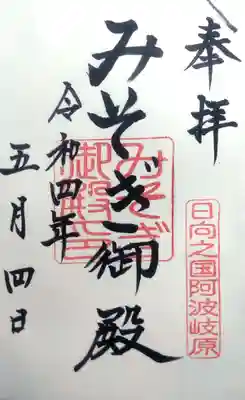 奉拝
日向之国阿波岐原
みそぎ御殿
みそぎ
御殿
令和四年
五月四日